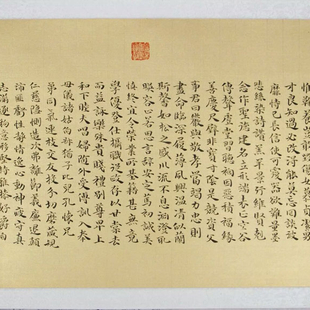 惟鞠養豈敢毀傷女慕貞潔男效
才良知過必改得能莫忘罔談彼
短靡恃己長信使可覆器欲難量墨
悲絲染詩讚羔羊景行維賢剋
念作聖德建名立形端表正空谷
傳聲虛堂習聽禍因惡積福緣
善慶尺璧非寶寸陰是競資父
事君曰嚴與敬孝當竭力忠則
盡命臨深履薄夙興溫凊似蘭
斯馨如松之盛川流不息淵澄取
暎容止若思言辭安定篤初誠美
慎終宜令榮業所基藉甚無竟
學優登仕攝職從政存以甘棠去
而益詠樂殊貴賤禮別尊卑上
和下睦夫唱婦隨外受傅訓入奉
母儀諸姑伯叔猶子比兒孔懷兄
弟同氣連枝交友投分切磨箴規
仁慈隱惻造次弗離節義廉退顛
沛匪虧性靜情逸心動神疲守真
志滿逐物意移堅持雅操好爵自